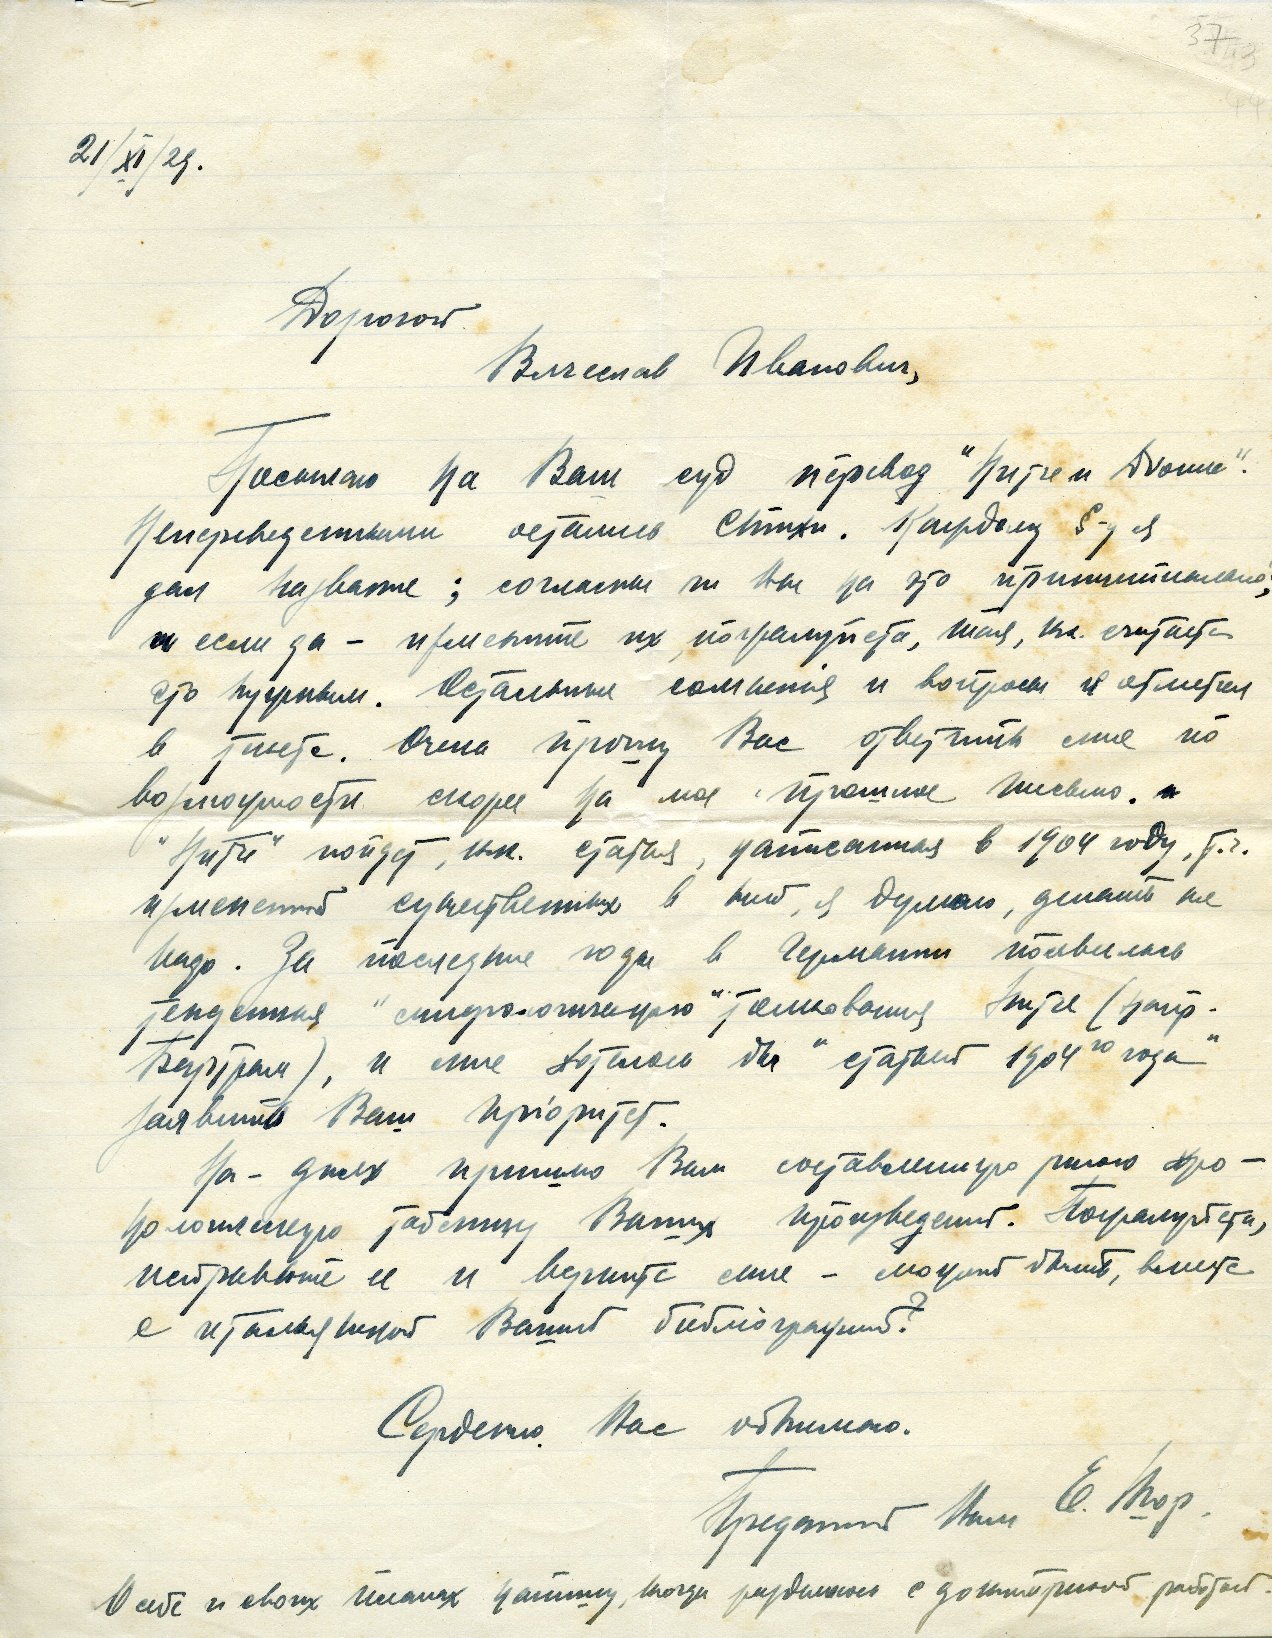 37
43
44
21/XI/29.
Дорогой
Вячеслав Иванович,
Посылаю на Ваш суд перевод "Ницше и Дионис".
Непереведенными остались стихи. Каждому §-у я
дал название; согласны ли Вы на это принципиально,
и если да – измените их, пожалуйста, там, где считаете
это нужным. Остальные сомненія и вопросы я отметил
в тексте. Очень прошу Вас ответить мне по
возможности скорее на мое прошлое письмо.
"Ницше" пойдет, как статья, написанная в 1904 году, т.ч.
изменений существенных в ней, я думаю, делать не
надо. За последние годы в Германии появилась
тенденция "мифологического" толкования Ницше (напр.
Бертрам), и мне хотелось бы "статьей 1904го года"
заявить Ваш пріоритет.
На-днях пришлю Вам составленную мною хро-
нологическую таблицу Ваших произведений. Пожалуйста,
исправьте ее и верните мне – может быть, вместе
с итальянской Вашей библіографией?
Сердечно Вас обнимаю.
Преданный Вам Е. Шор.
О себе и своих планах напишу, когда разделаюсь с докторской работой.